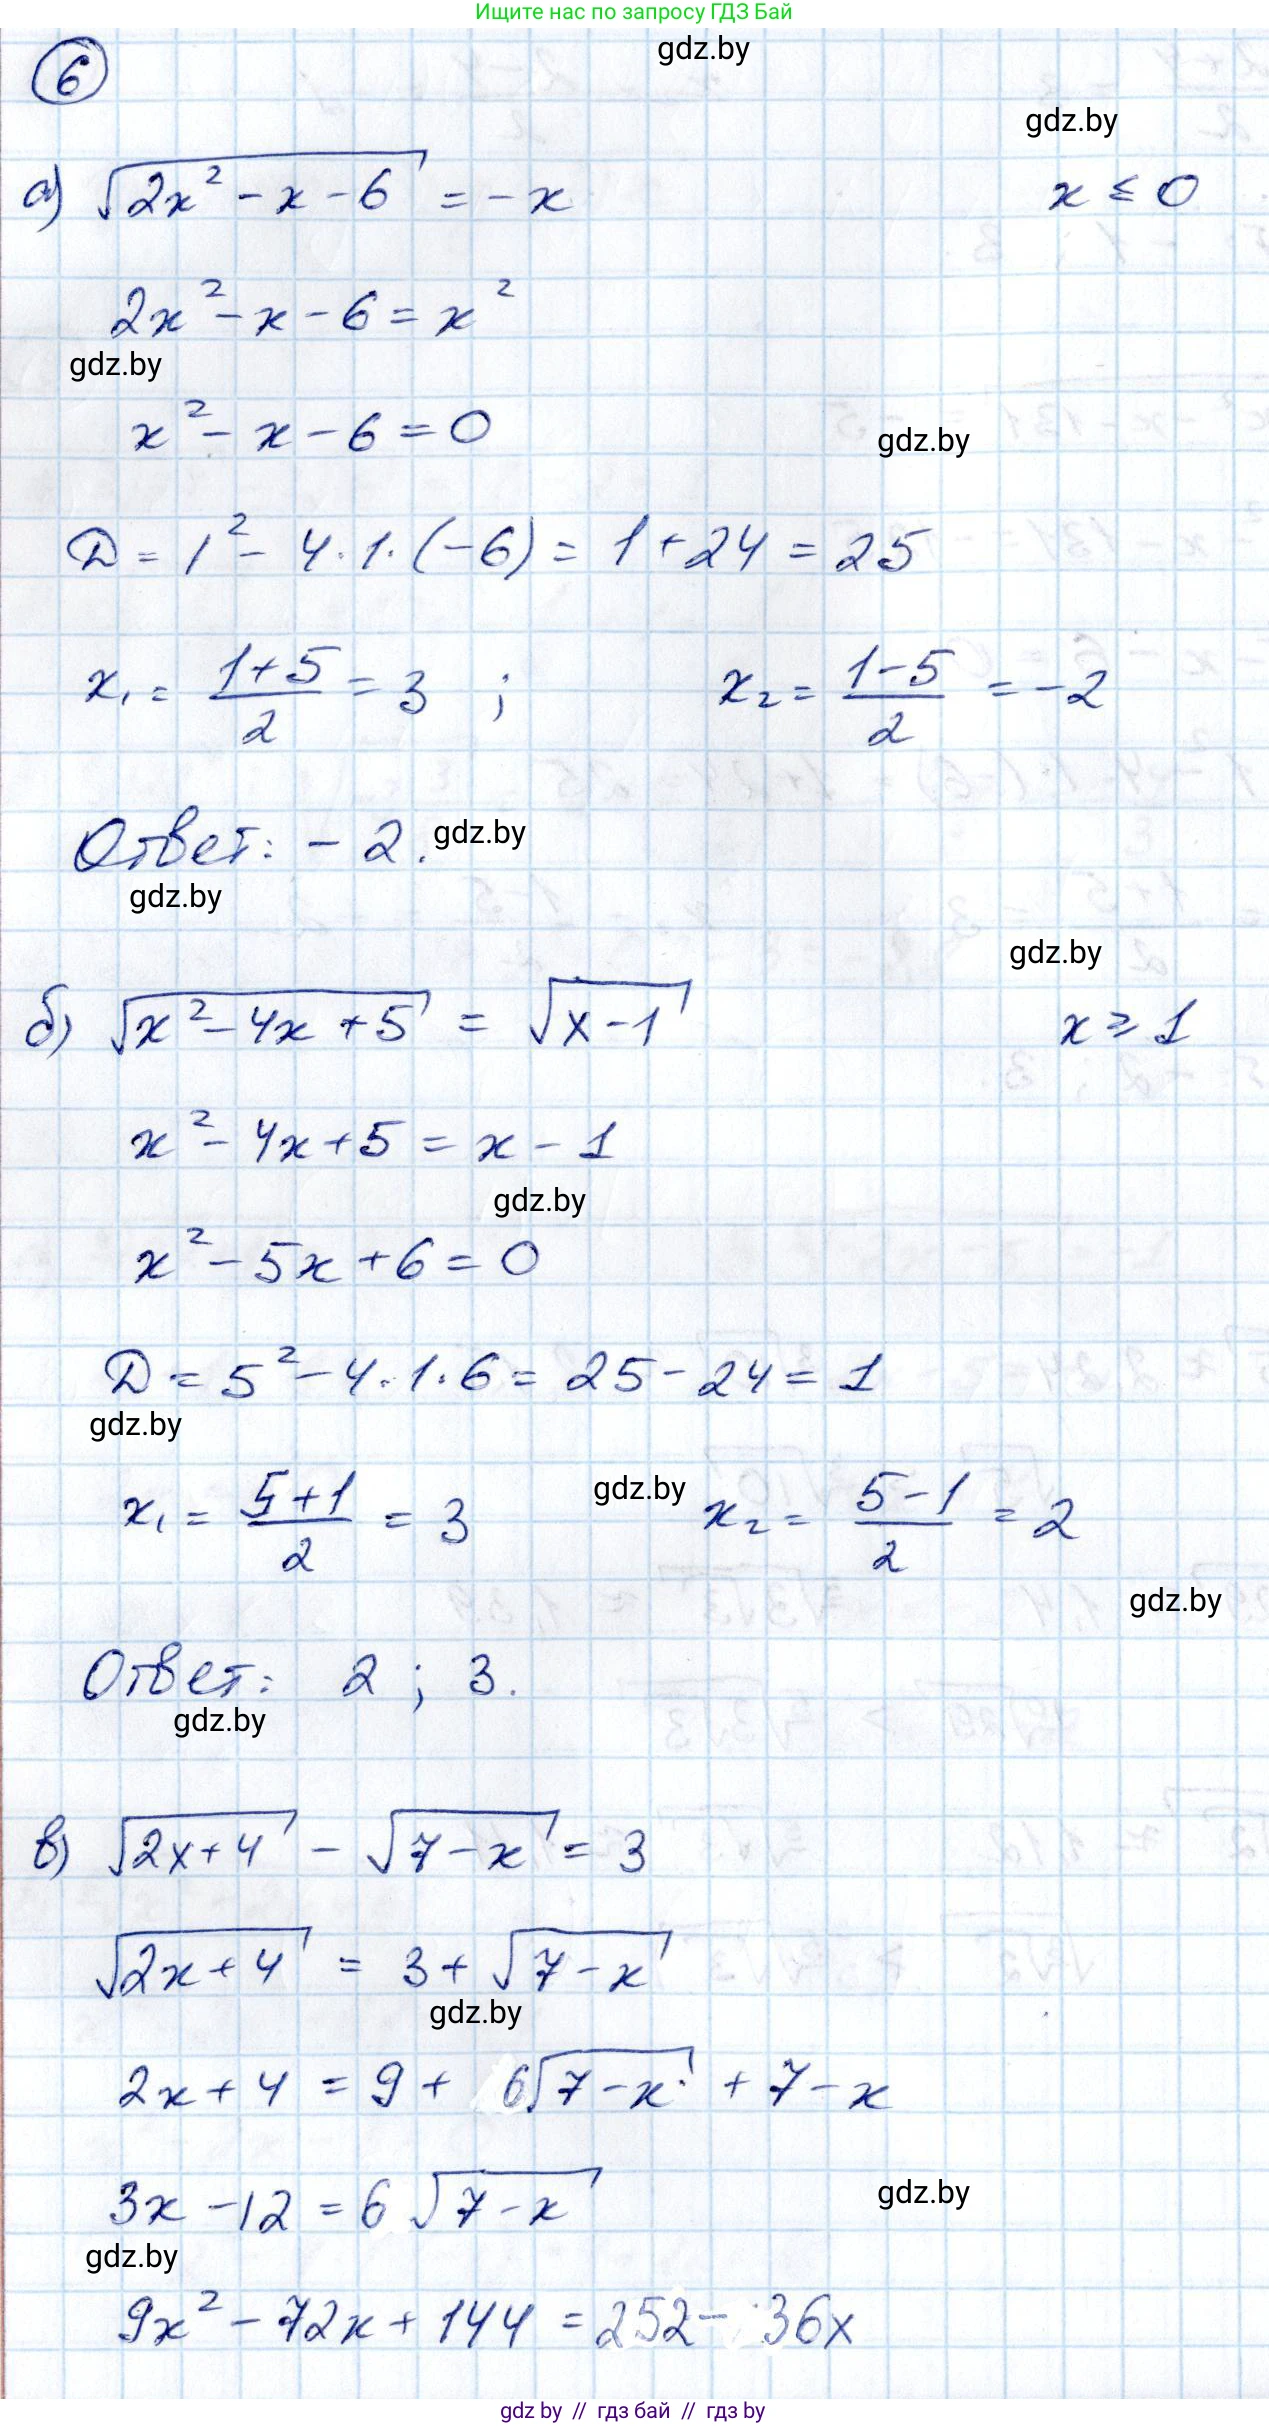 Ищите нас по запросу ГДЗ Бай
gdz.by
6
gdz.by
а) √(2x² - x - 6) = -x    x ≤ 0
2x² - x - 6 = x²
gdz.by
x² - x - 6 = 0
gdz.by
D = 1² - 4·1·(-6) = 1 + 24 = 25
x₁ = (1+5)/2 = 3 ;    x₂ = (1-5)/2 = -2
Ответ: -2.
gdz.by
gdz.by
gdz.by
б) √(x² - 4x + 5) = √(x - 1)    x ≥ 1
x² - 4x + 5 = x - 1
gdz.by
x² - 5x + 6 = 0
D = 5² - 4·1·6 = 25 - 24 = 1
gdz.by
x₁ = (5+1)/2 = 3    gdz.by    x₂ = (5-1)/2 = 2
gdz.by
Ответ: 2 ; 3.
gdz.by
в) √(2x+4) - √(7-x) = 3
√(2x+4) = 3 + √(7-x)
gdz.by
2x + 4 = 9 + 6√(7-x) + 7 - x
3x - 12 = 6√(7-x)
gdz.by
gdz.by
9x² - 72x + 144 = 252 - 36x
gdz by // гдз бай // gdz by